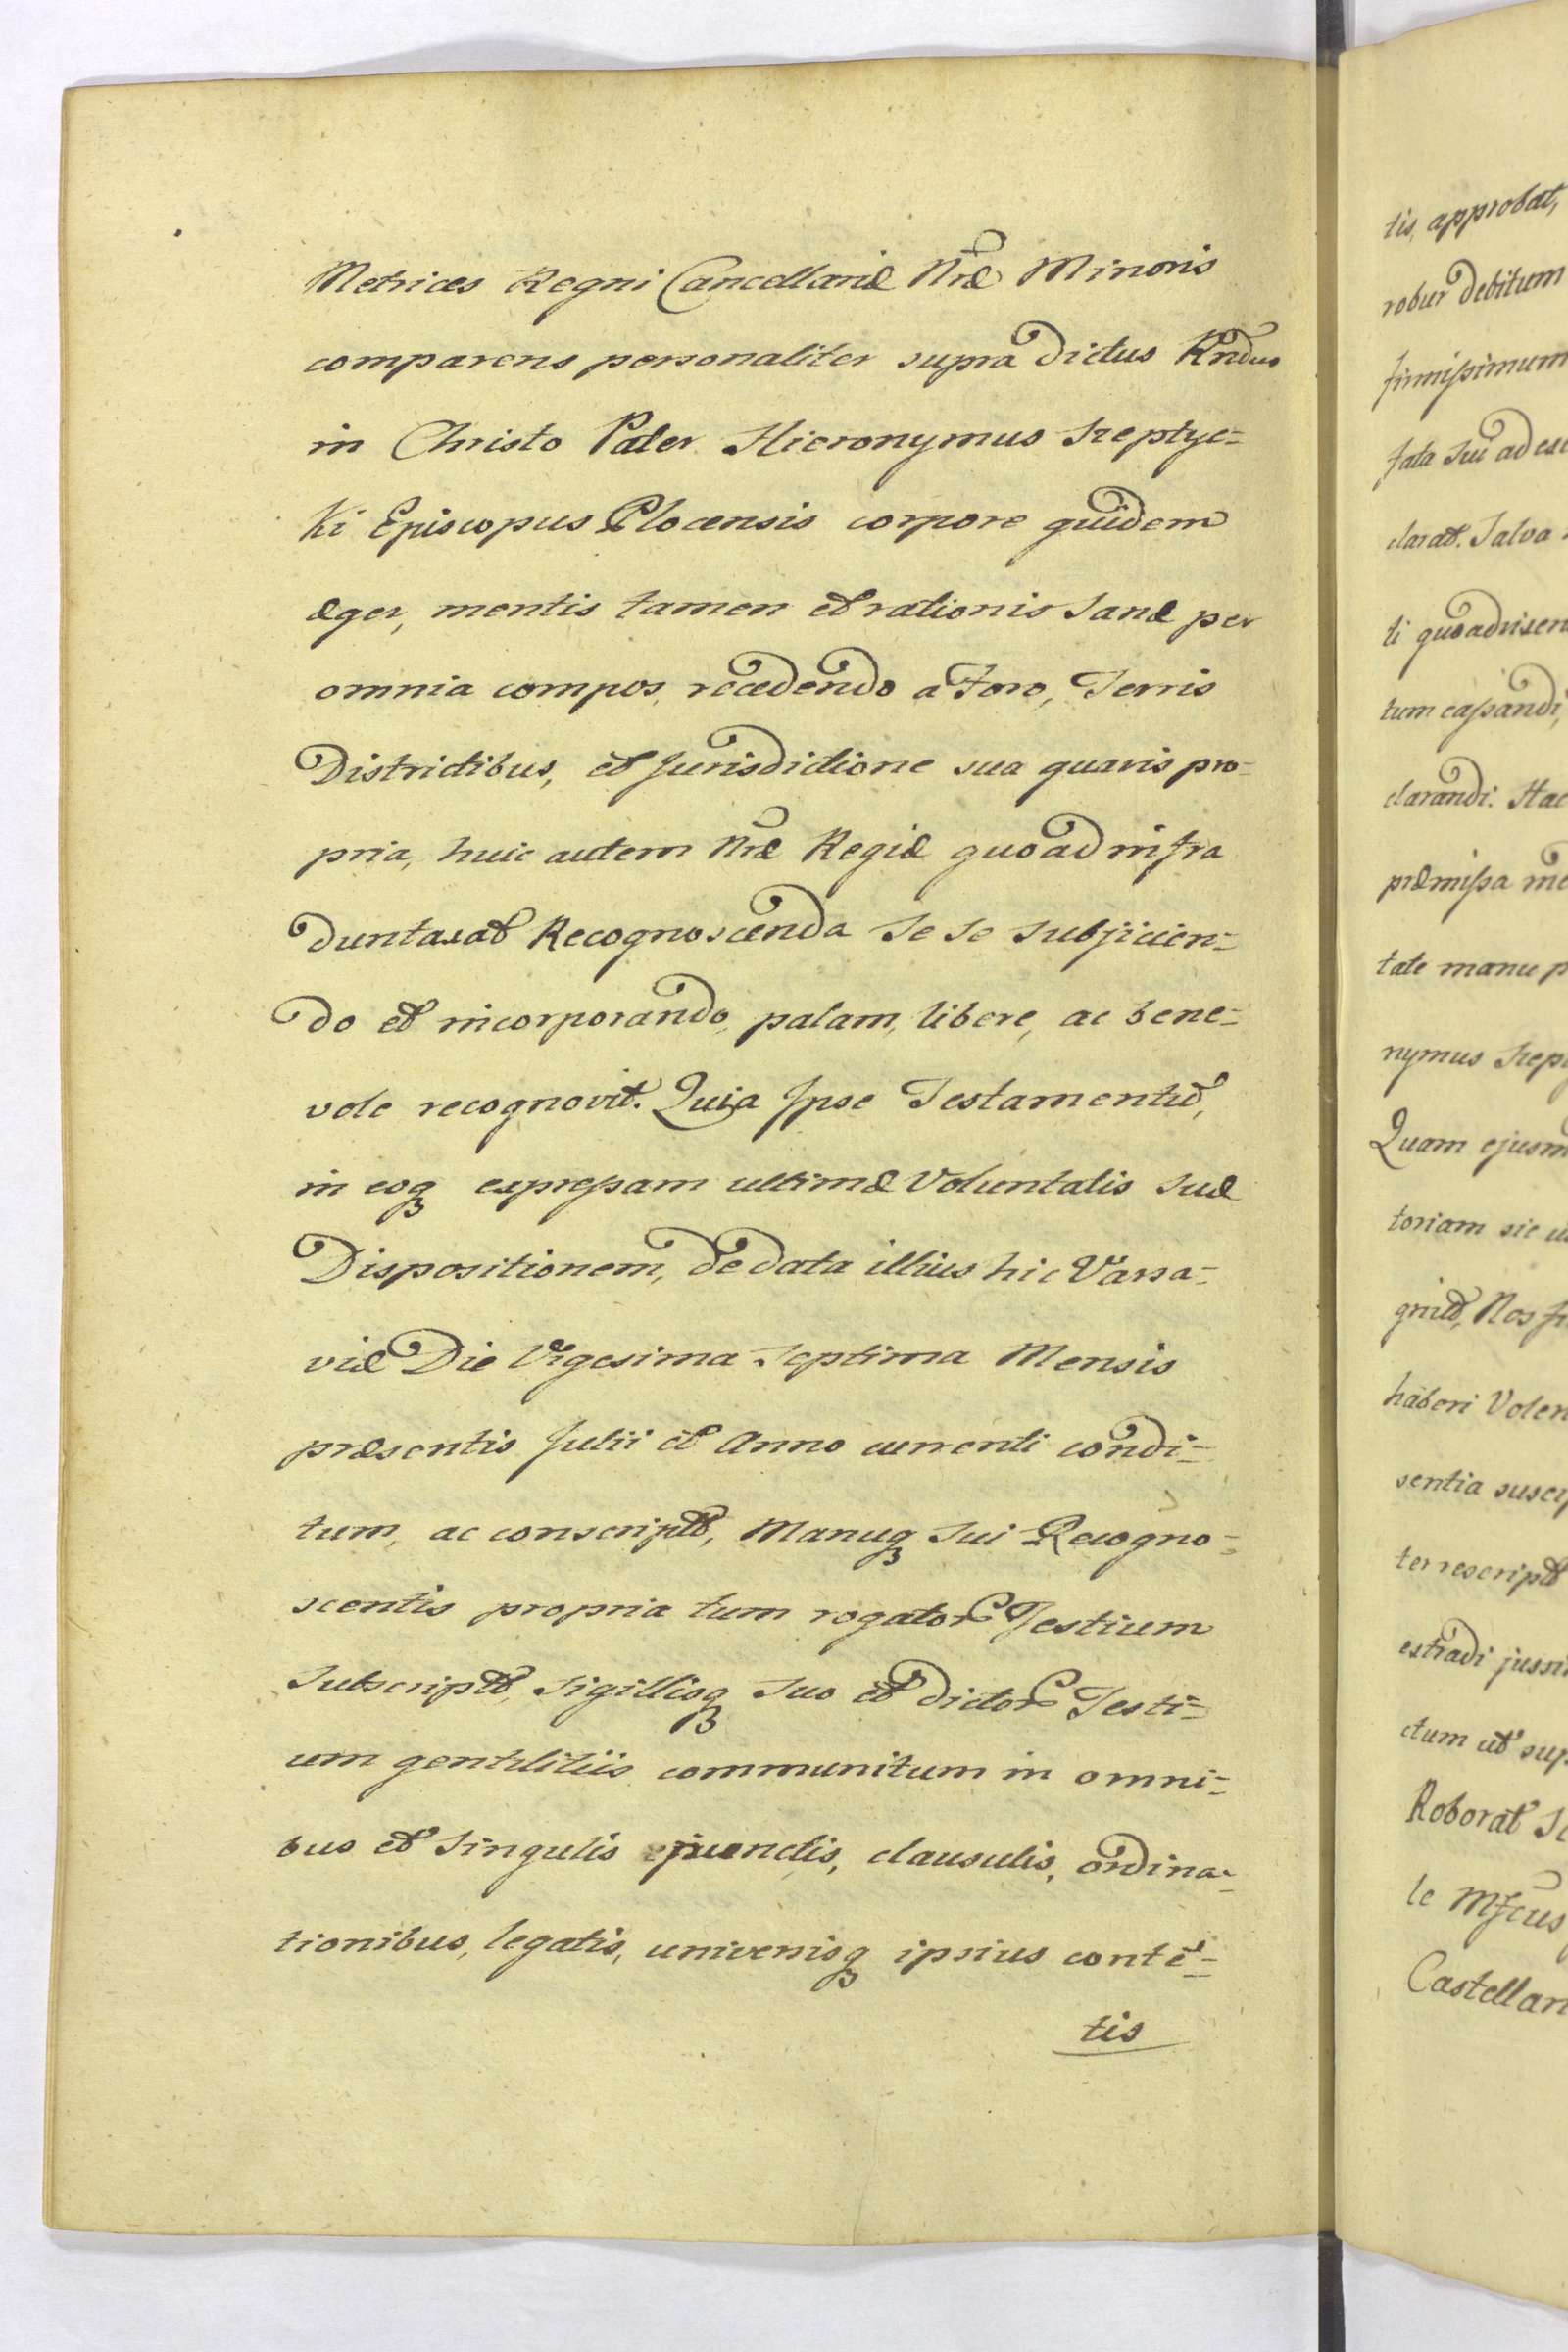 Metrices Regni Cancellariæ Nræ Minoris
comparens personaliter supra Dictus Rndus
in Christo Pater Hieronymus Szeptyc-
ki Episcopus Plocensis corpore quidem
æger, mentis tamen et rationis sanæ per
omnia compos, recedendo a Foro, Terris
Districtibus, et Jurisdictione sua quavis pro-
pria, huic autem Nræ Regiæ quoad infra
duntaxat Recognoscenda se se subjicien-
do et incorporando, palam, libere, ac bene-
vole recognovit. Quia Ipse Testamentũ,
in eoq₃ expressam ultimæ Voluntatis suæ
Dispositionem, de data illius hic Varsa-
viæ Die Vigesima septima Mensis
præsentis Julii et Anno currenti condi-
tum, ac conscriptũ, Manuq₃ sui Recogno-
scentis propria tum rogator Testium
subscriptũ, sigillisq₃ suo et dictor Testi-
um gentilitiis communitum in omni-
bus et singulis punctis, clausulis, ordina-
tionibus, legatis, universisq₃ ipsius contẽ-
tis
tis, approbat,
robur debitum
firmissimum
fata sui ad
clarat. Salva
li quoad
tum cassandi,
clarandi. Hac
præmissa
tate manu p
nymus Szep
Quam ejusm
toriam sic
gnitũ, Nos
haberi Volen
sentia suscip
ter rescriptũ
extradi jussi
ctum ut sup
Roborat
le Mfcus
Castellan